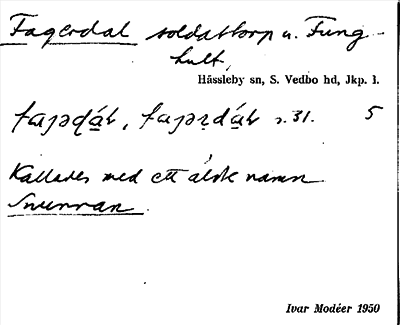 Fagerdal soldattorp u. Fung-
hult,
Hässleby sn, S. Vedbo hd, Jkp. l.
s. 31. 5
Kallades med ett äldre namn
Snurran.
Ivar Modéer 1950